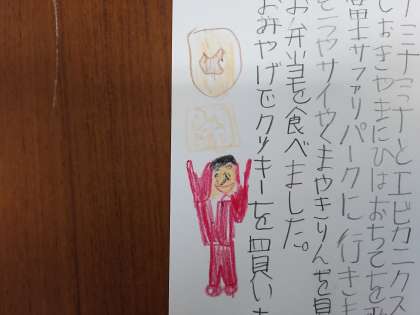 ミナミナとエビカニクス
おきやまにひはおちてを
士サファリパークに行きま
やサイやくまやきりんを見
お弁当を食べました。
おみやげでクッキーを買いま